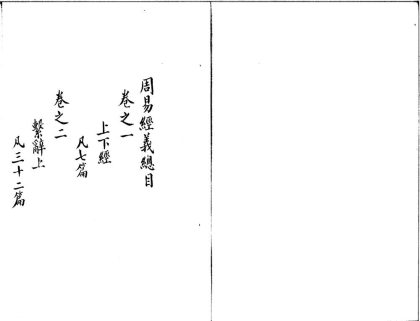 周易經義總目
卷之一
上下經
凡七篇
卷之二
繫辭上
凡三十二篇